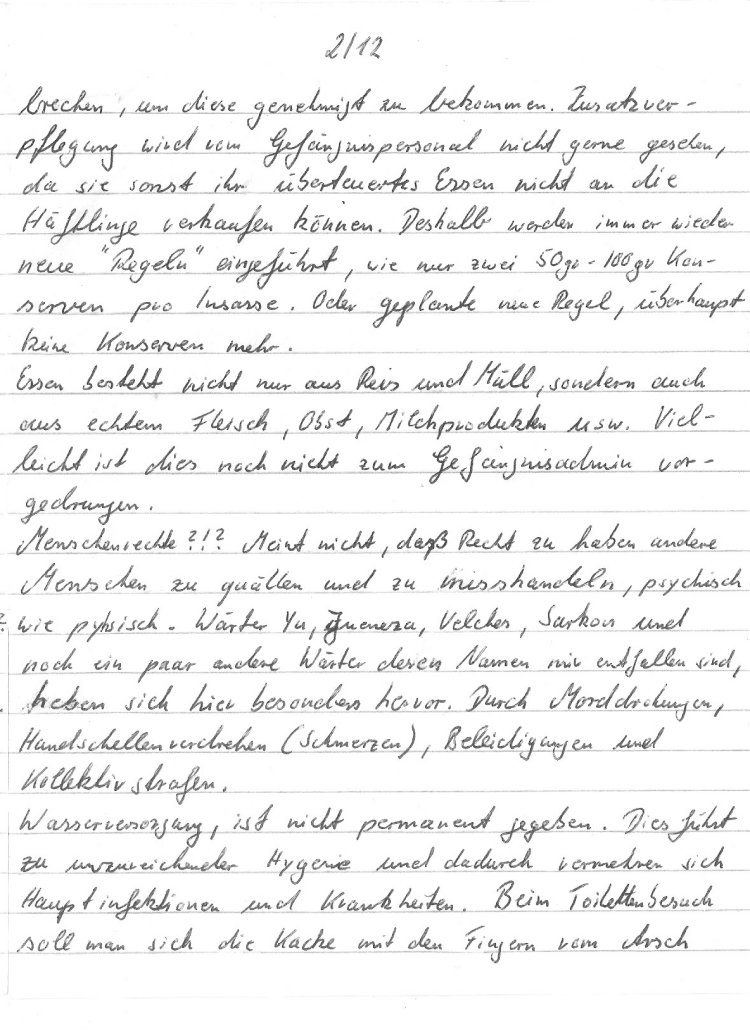 2/12
brechen, um diese genehmigt zu bekommen. Zusatzver-
pflegung wird vom Gefängnispersonal nicht gerne gesehen,
da sie sonst ihr überteuertes Essen nicht an die
Häftlinge verkaufen können. Deshalb werden immer wieder
neue "Regeln" eingeführt, wie nur zwei 50gr-100gr Kon-
serven pro Insasse. Oder geplante neue Regel, überhaupt
keine Konserven mehr.
Essen besteht nicht nur aus Reis und Müll, sondern auch
aus echtem Fleisch, Obst, Milchprodukten usw. Viel-
leicht ist dies noch nicht zum Gefängnisadmin vor-
gedrungen.
Menschenrechte?!? Meint nicht, daß Recht zu haben andere
Menschen zu quällen und zu misshandeln, psychisch
wie pyhsisch. Wärter Yu, Velches, Sarkou und
noch ein paar andere Wärter deren Namen mir entfallen sind,
heben sich hier besonders hervor. Durch Morddrohungen,
Handschellenverdrehen (Schmerzen), Beleidigungen und
Kollektivstrafen.
Wasserversorgung, ist nicht permanent gegeben. Dies führt
zu unzureichender Hygenie und dadurch vermehren sich
Hauptinfektionen und Krankheiten. Beim Toilettenbesuch
soll man sich die Kacke mit den Fingern vom Arsch